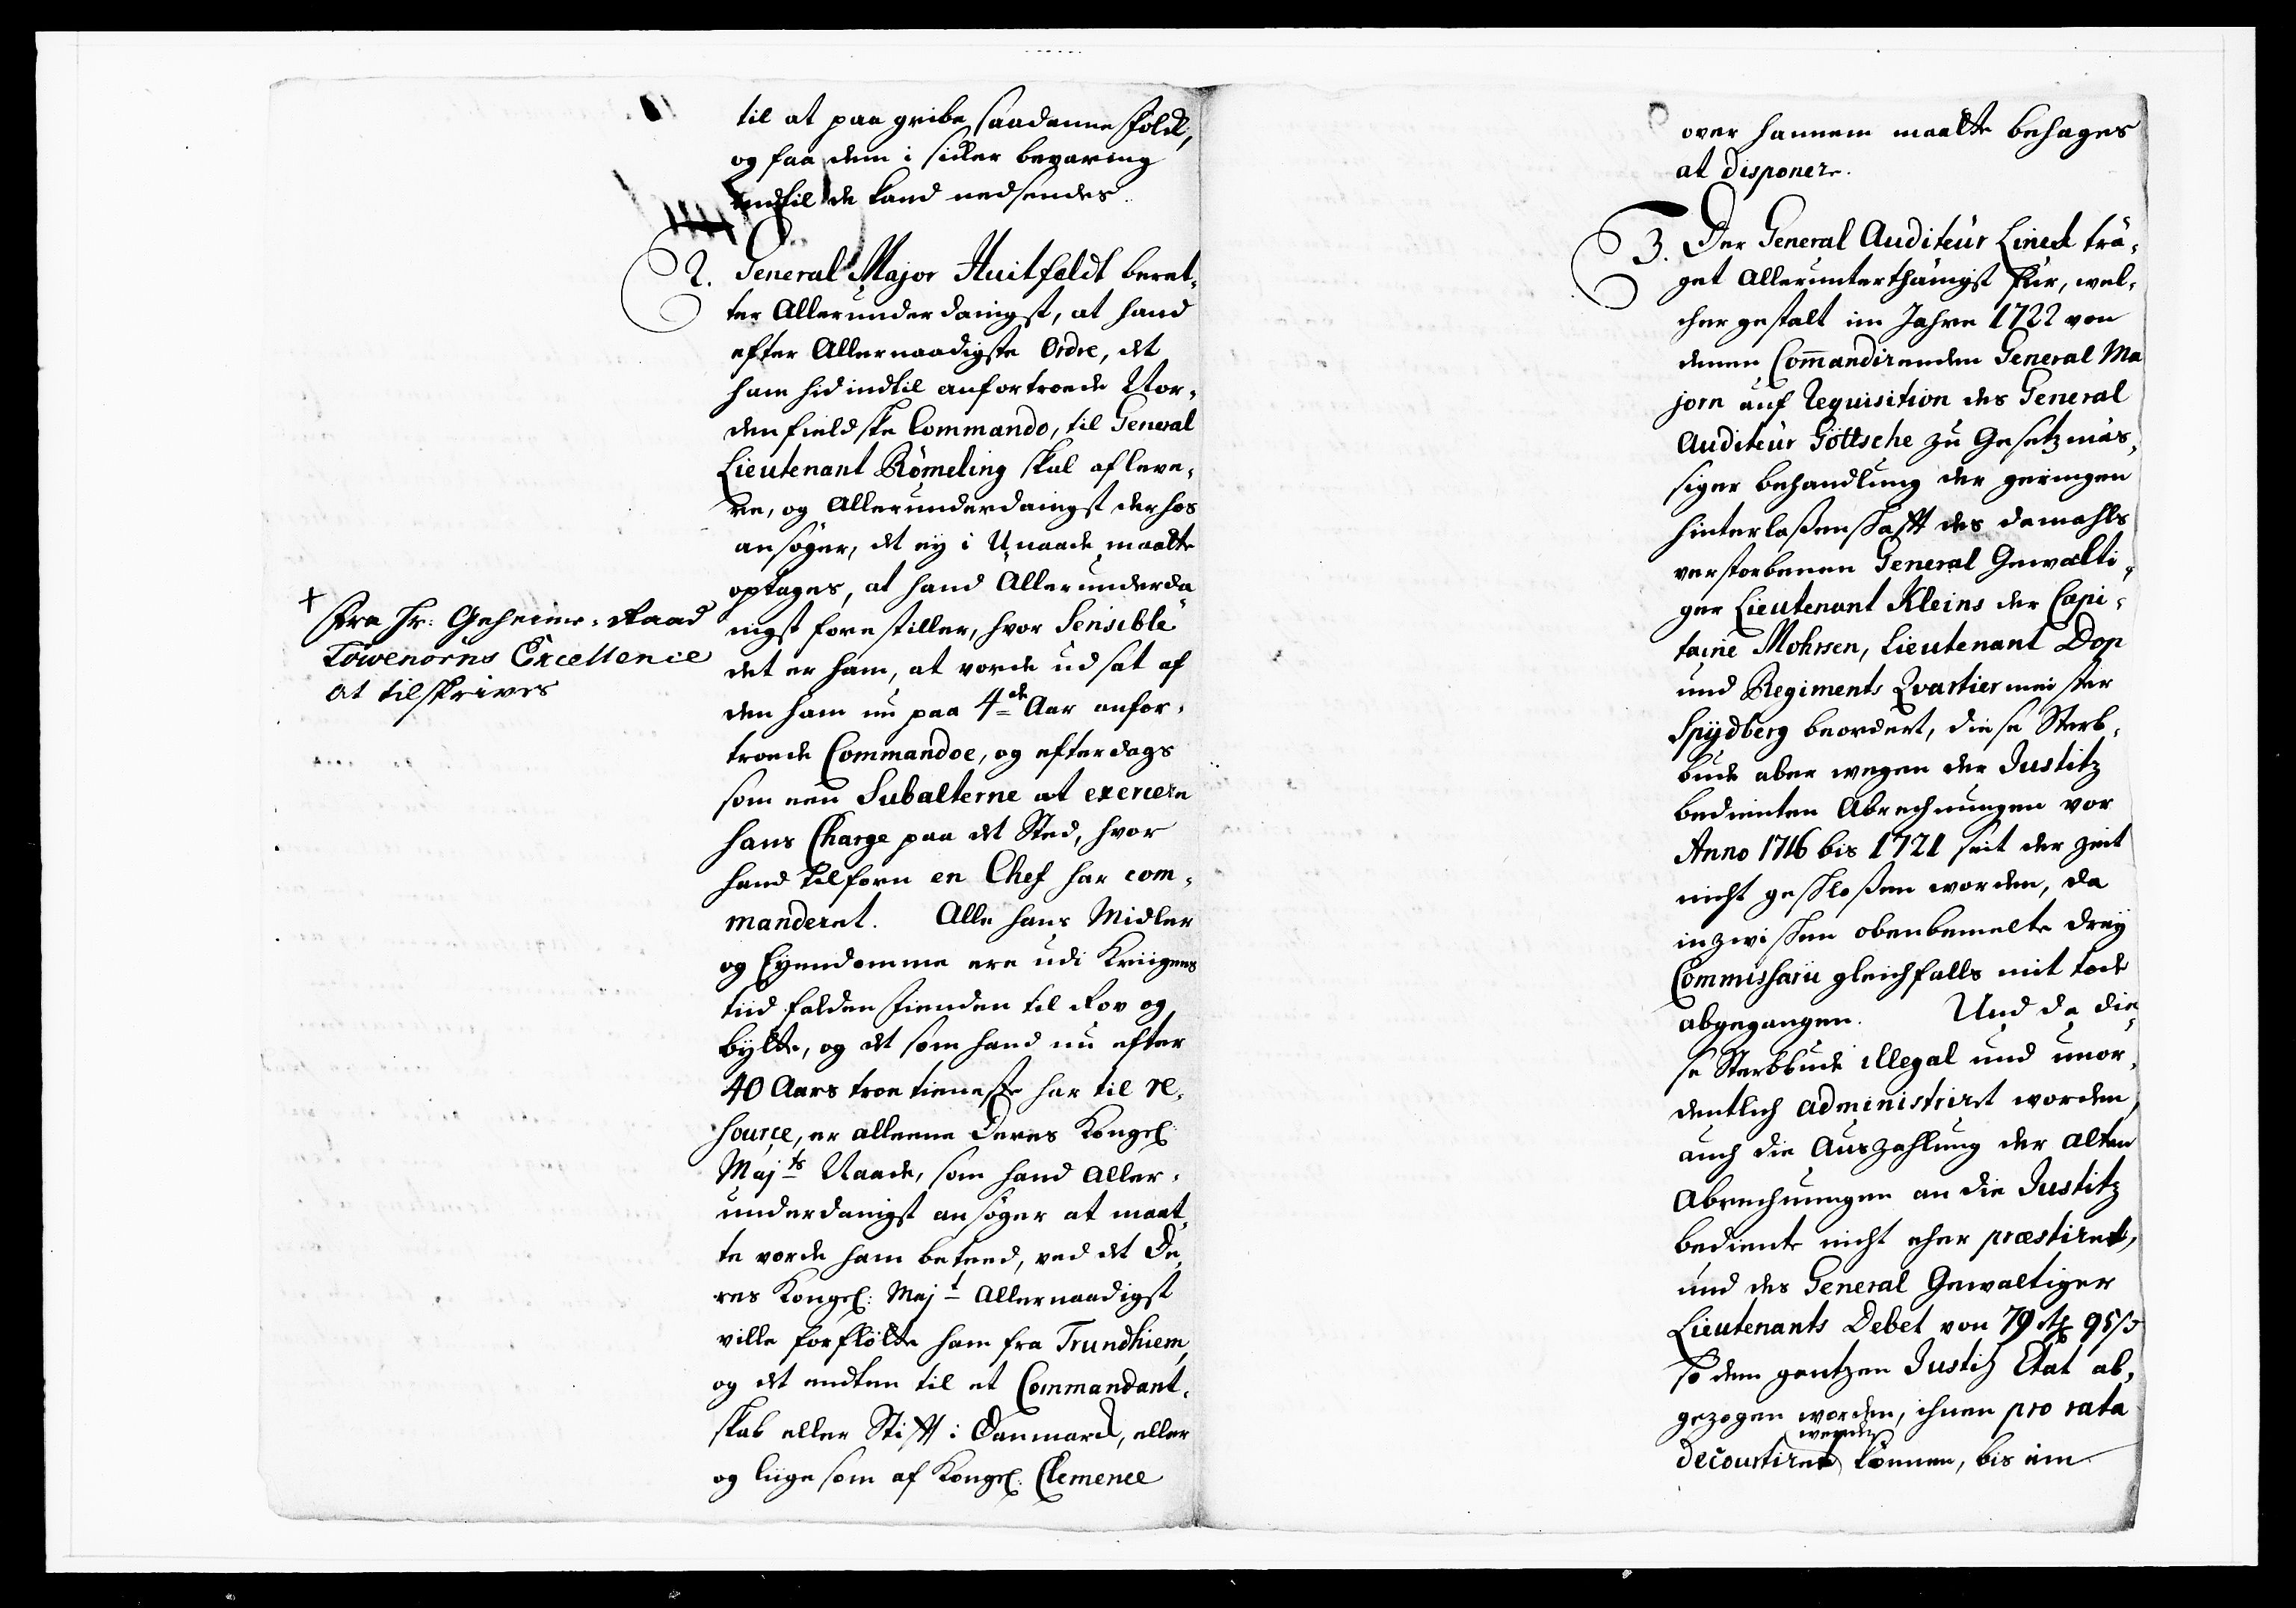 til at paa gribe saadanne folck,
og faa dem i sicker bevaring
indtil de kand nedsendes.
2. General Major Huitfeldt beret-
ter Allerunderdanigst, at hand
efter Allernaadigste Ordre, det
ham hid indtil anfortroede Nor-
denfieldske Commando, til General
Lieutenant Römeling skal afleve-
re, og Allerunderdanigst derhos
ansøger, det ey i Unaade maatte
optages, at hand Allerunderda-
nigst forestiller, hvor Sensible
det er ham, at vorde udsat af
den ham nu paa 4de Aar anfor-
troede Commandoe, og efterdags
som een Subalterne at exercere
hans Charge paa det Sted, hvor
hand tilforn en Chef har com-
manderet. Alle hans Midler
og Eyendomme ere udi Kriigens
tiid falden fienden til Rov og
bytte, og det som hand nu efter
40 Aars troe tieneste har til re-
source, er alleene Deres Kongel:
Majts Naade, som hand Aller-
underdanigst ansøger at maat-
te vorde ham beteed, ved det De-
res Kongel: Majt Allernaadigst
ville forflötte ham fra Trundhiem,
og det endten til et Commandant-
skab eller Stifft i Danmarck, eller
og liigesom af Kongel: Clemence
+
Fra Hr: Geheime-Raad
Löwenörns Excellence
at tilskrives
over hannem maatte behages
at disponere.
3. Der General Auditeur Lined trä-
get Allerunterthänigst für, wel-
cher gestalt im Jahre 1722 von
denen Commandirenden General Ma
jorn auf Requisition des General
Auditeur Göttsche zu Gesetzmäs-
siger behandlung der geringen
hinterlaßenschafft des damahls
verstorbenen General Gewalti-
ger Lieutenant Kleins der Capi-
taine Mohrsen, Lieutenant Dop
und Regiments Qvartiermeister
Spydberg beordert, diese Sterb-
bude aber wegen der Justitz
bedienten Abrechnungen vor
Anno 1716 bis 1721 seit der Zeit
nicht geschloßen worden, da
inzwischen obenbemelte drey
Commissarii gleichfalls mit tode
abgegangen. Und da die-
se Sterbbude illegal und unor-
dentlich administriret worden,
auch die Auszahlung der alten
Abrechnungen an die Justitz
bediente nicht eher præstiret,
und des General Gewaltiger
Lieutenants Debet von 79 rtl 95 ß
so dem gantzen Justitz Etat ab-
gezogen worden, ihnen pro rata
werden
decourtiret können, bis üm